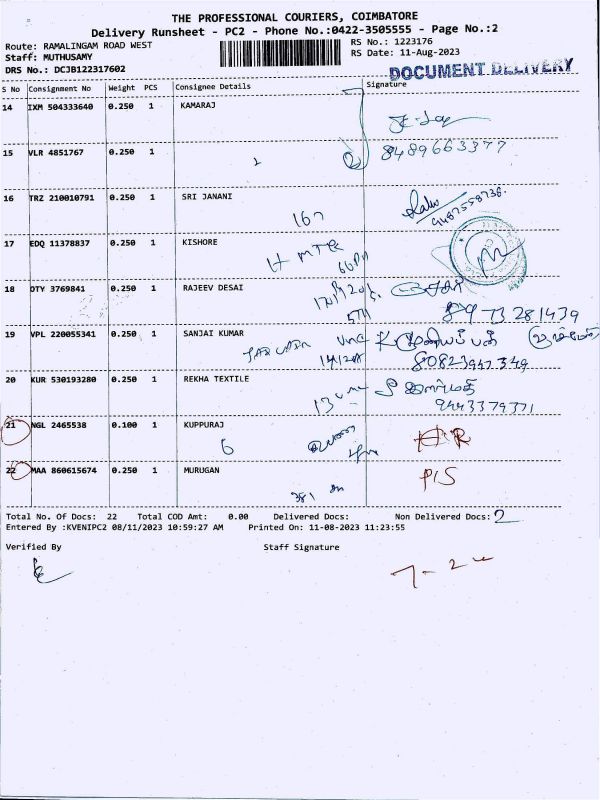 THE PROFESSIONAL COURIERS, COIMBATORE
Delivery Runsheet - PC2 - Phone No.:0422-3505555 - Page No.:2
Route: RAMALINGAM ROAD WEST
RS No.: 1223176
Staff: MUTHUSAMY
RS Date: 11-Aug-2023
DRS No.: DCJB122317602
DOCUMENT DELIVERY
S No Consignment No Weight PCS Consignee Details Signature
14 IXM 504333640 0.250 1 KAMARAJ
15 VLR 4851767 0.250 1
8489663377
16 TRZ 210010791 0.250 1 SRI JANANI
167
9487558736.
17 EDQ 11378837 0.250 1 KISHORE
18 OTY 3769841 0.250 1 RAJEEV DESAI
89 73281439
19 VPL 220055341 0.250 1 SANJAI KUMAR
80823947349
20 KUR 530193280 0.250 1 REKHA TEXTILE
13
9443379371
21 NGL 2465538 0.100 1 KUPPURAJ
6
22 MAA 860615674 0.250 1 MURUGAN
381
P/S
Total No. Of Docs: 22 Total COD Amt: 0.00 Delivered Docs: Non Delivered Docs: 2
Entered By :KVENIPC2 08/11/2023 10:59:27 AM Printed On: 11-08-2023 11:23:55
Verified By Staff Signature